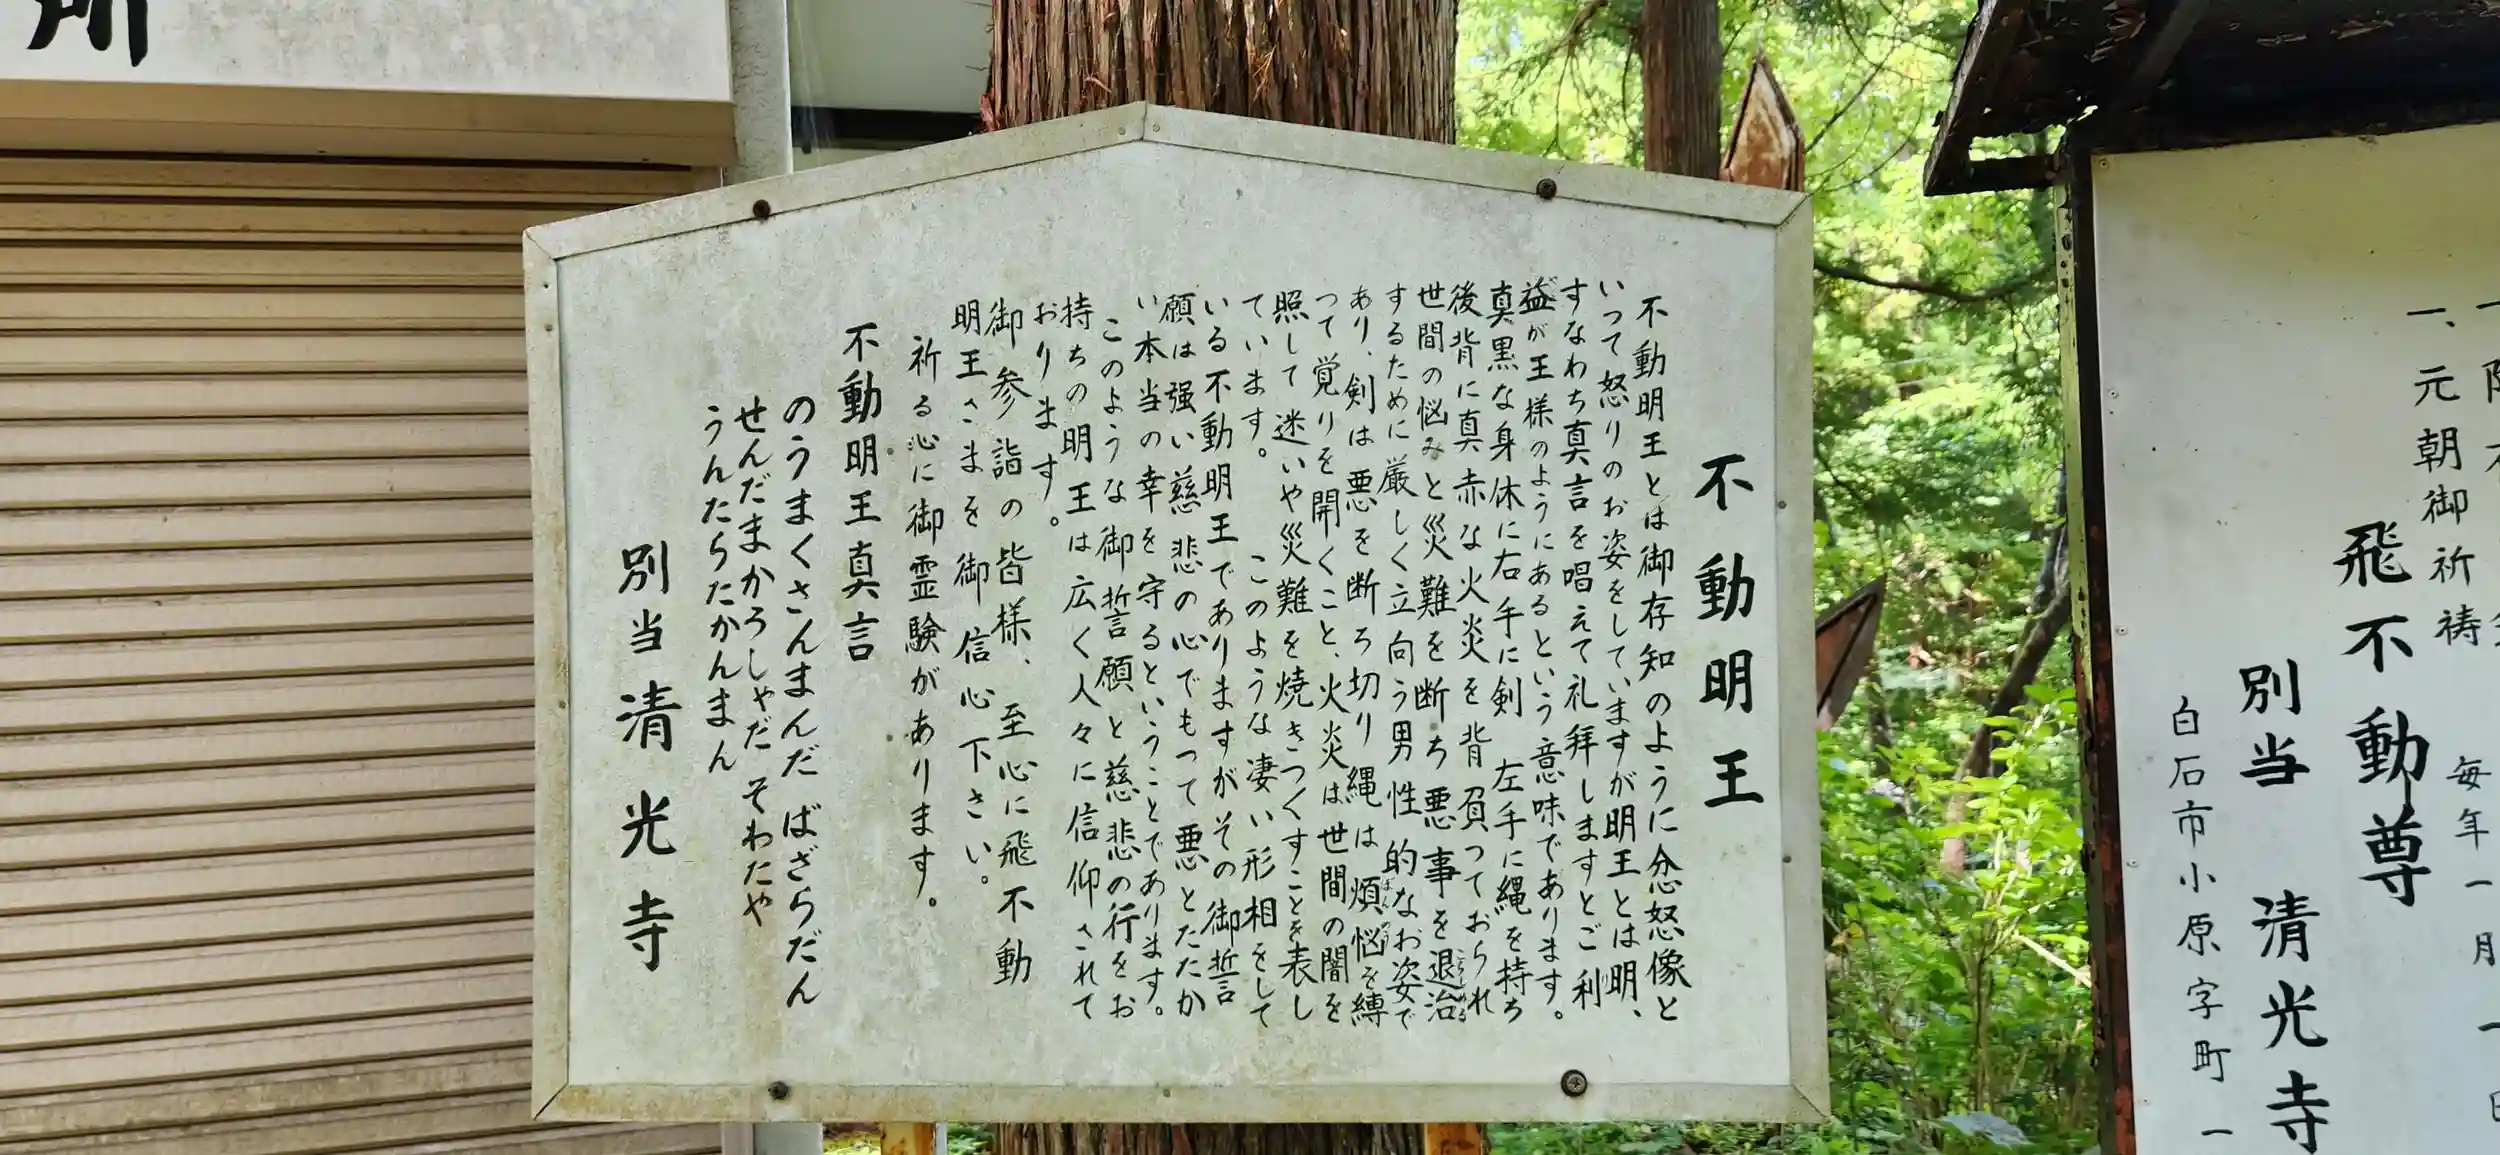 不動明王
不動明王とは御存知のように忿怒像と
いって怒りのお姿をしていますが明王とは明、
すなわち真言を唱えて礼拝しますとご利
益が王様のようにあるという意味であります。
真黒な身体に右手に剣 左手に縄を持ち
後背に真赤な火炎を背負っておられ
世間の悩みと災難を断ち悪事を退治
するために厳しく立向う男性的なお姿で
あり、剣は悪を断ち切り縄は煩悩を縛
って覚りを開くこと、火炎は世間の闇を
照して迷いや災難を焼きつくすことを表し
ています。 このような凄い形相をして
いる不動明王でありますがその御誓
願は強い慈悲の心でもって悪とたたか
い本当の幸を守るということであります。
このような御誓願と慈悲の行をお
持ちの明王は広く人々に信仰されて
おります。
御参詣の皆様、至心に飛不動
明王さまを御信心下さい。
祈る心に御霊験があります。
不動明王真言
のうまくさんまんだ ばざらだん
せんだまかろしゃだ そわたや
うんたらたかんまん
別当清光寺
所
一、元朝御祈祷 毎年一月一日
飛不動尊
別当 清光寺
白石市小原字町一